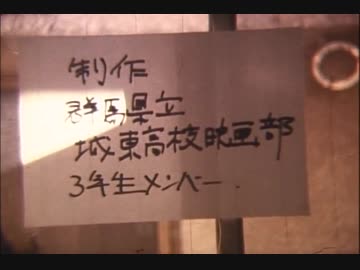 制作
群馬県立
城東高校映画部
3年生メンバー.